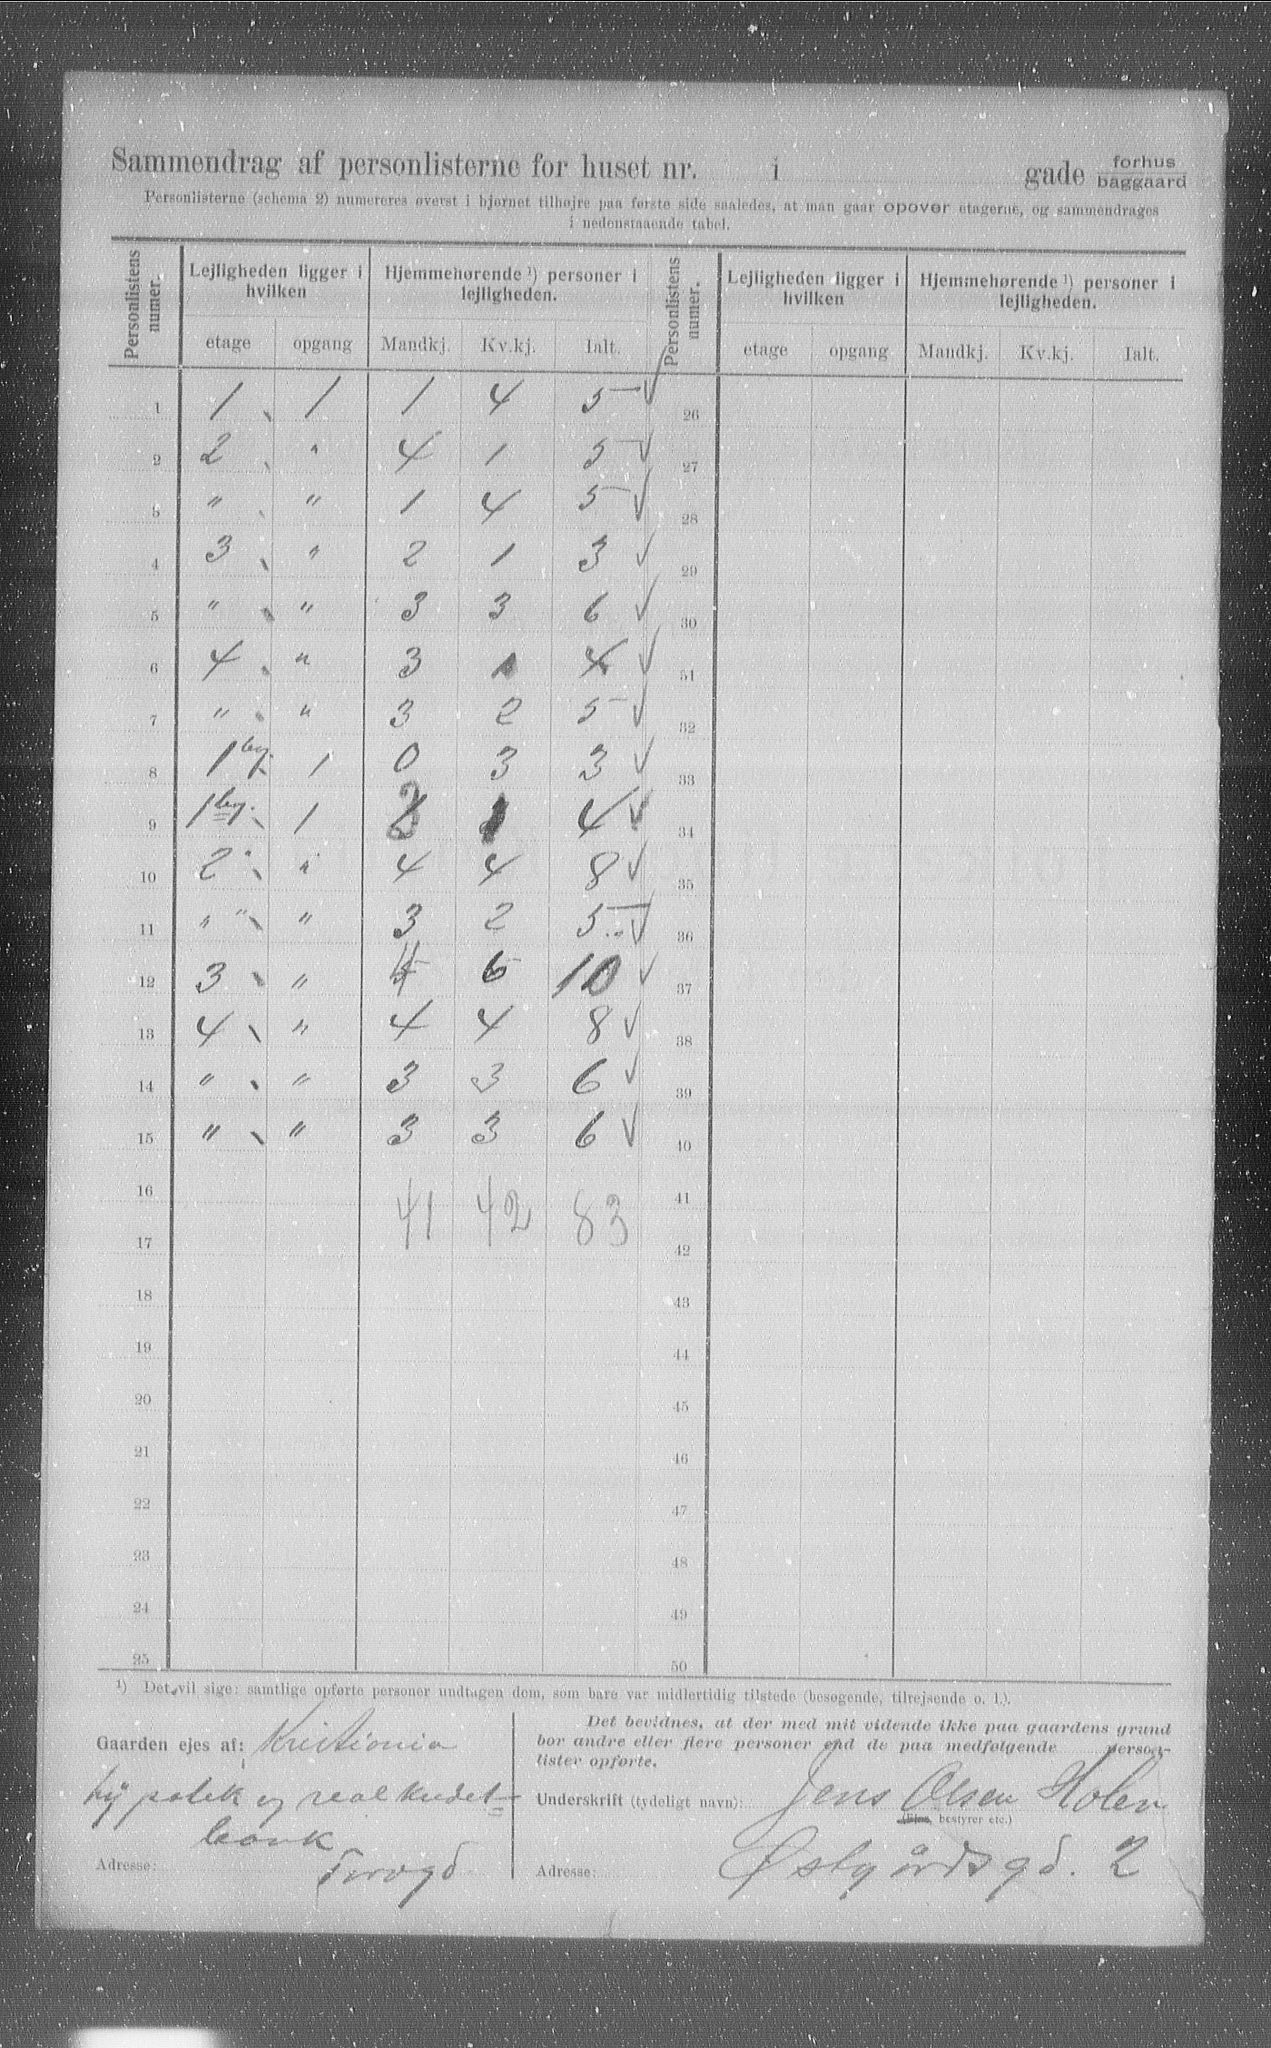 Sammendrag af personlisterne for huset nr. i gade forhus baggaard
Personlisterne (schema 2) numereres øverst i hjørnet tilhøjre paa første side saaledes, at man gaar opover etagerne, og sammendrages
i nedenstaaende tabel.
Personlistens numer. Lejligheden ligger i hvilken Hjemmehørende ¹) personer i lejligheden. Personlistens numer. Lejligheden ligger i hvilken Hjemmehørende ¹) personer i lejligheden.
etage opgang Mandkj. Kv.kj. Ialt. etage opgang Mandkj. Kv.kj. Ialt.
1 1 1 1 4 5 √ 26
2 2 " 4 1 5 √ 27
3 " " 1 4 5 √ 28
4 3 " 2 1 3 √ 29
5 " " 3 3 6 √ 30
6 4 " 3 1 4 √ 31
7 " " 3 2 5 √ 32
8 1 byg. 1 0 3 3 √ 33
9 1 byg. 1 3 1 4 √ 34
10 2 " " 4 4 8 √ 35
11 " " " 3 2 5 √ 36
12 3 " 4 6 10 √ 37
13 4 " 4 4 8 √ 38
14 " " 3 3 6 √ 39
15 " " 3 3 6 √ 40
16 41 42 83 41
17 42
18 43
19 44
20 45
21 46
22 47
23 48
24 49
25 50
¹) Det vil sige: samtlige opførte personer undtagen dem, som bare var midlertidig tilstede (besøgende, tilrejsende o. l.).
Gaarden ejes af: Kristiania
hypotek og realkredit=
bank
Adresse: Torvgd
Det bevidnes, at der med mit vidende ikke paa gaardens grund
bor andre eller flere personer end de paa medfølgende person-
lister opførte.
Underskrift (tydeligt navn): Jens Olsen Holen
(Ejer, bestyrer etc.)
Adresse: Østgårdsgd. 2